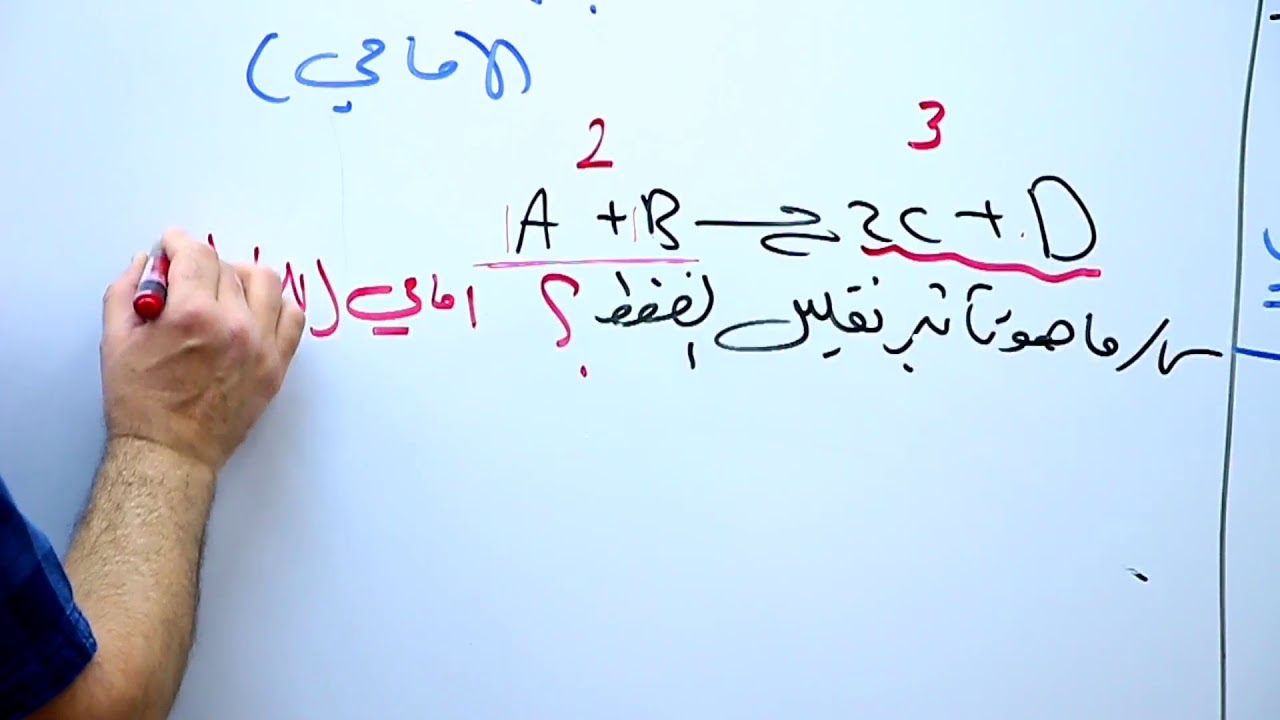 (الامامي)
2 3
1A + 1B ⇌ 2C + D
س/ ما هو تاثير تقليل الضغط ؟ امامي